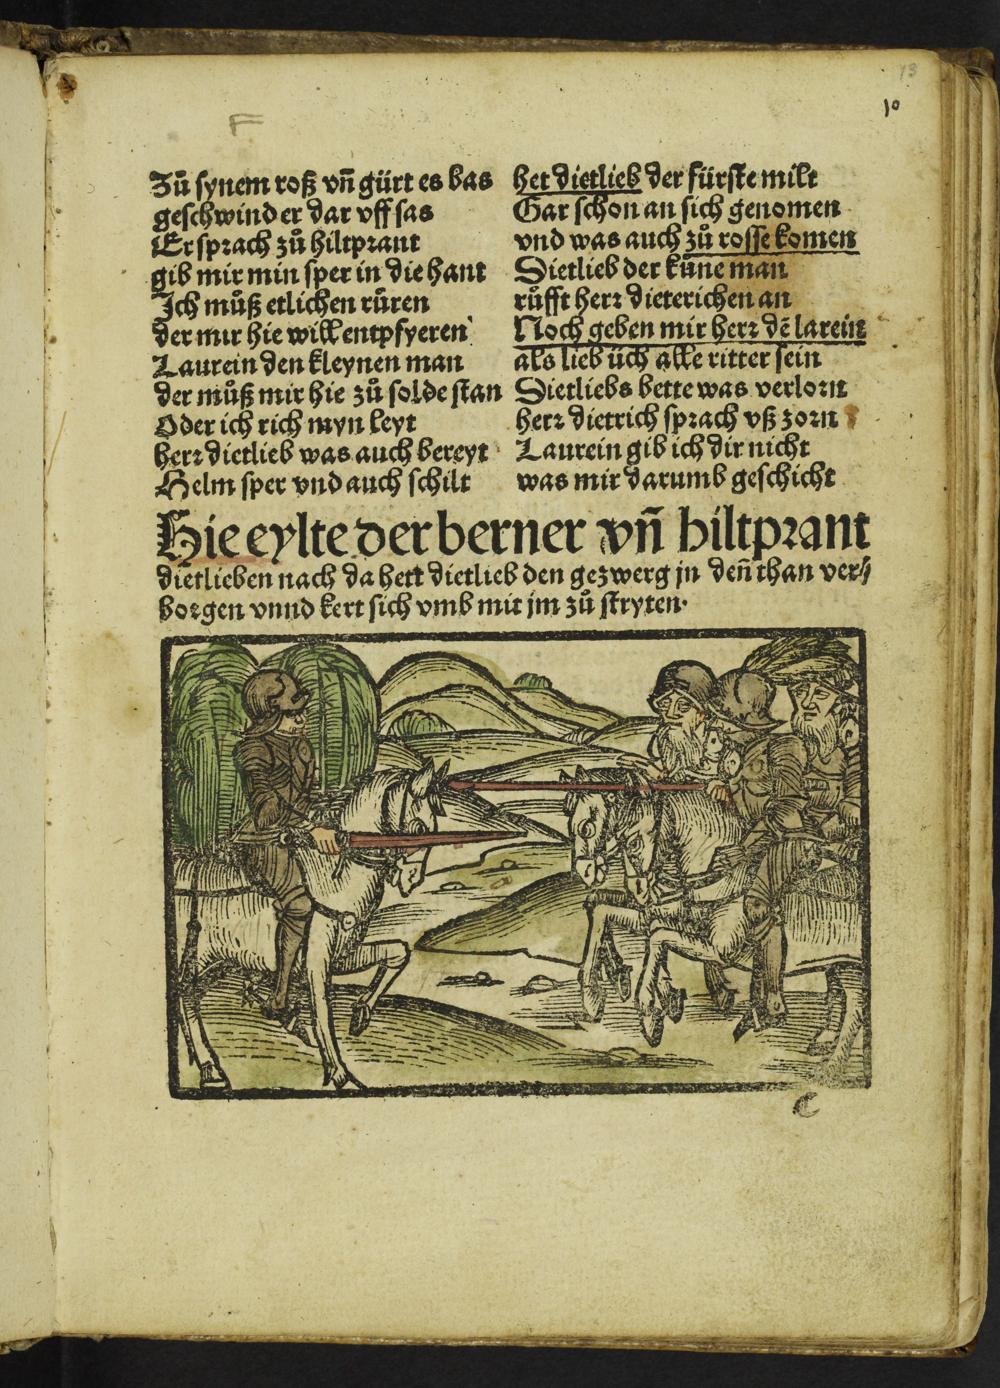 13
10
F
Zů synem roß vn̄ gürt es bas
geschwind er dar vff sas
Er sprach zů hiltprant
gib mir min sper in die hant
Ich můß etlichen rüren
der mir hie will entpfyeren
Laurein den kleynen man
der můß mir hie zů solde stan
Oder ich rich myn leyt
herr dietlieb was auch bereyt
Helm sper vnd auch schilt
het dietlieb der fürste milt
Gar schon an sich genomen
vnd was auch zů rosse komen
Dietlieb der küne man
růfft herr dieterichen an
Noch geben mir herr dē larein
als lieb üch alle ritter sein
Dietliebs bette was verlorn
herr dietrich sprach vß zorn
Laurein gib ich dir nicht
was mir darumb geschicht
Hie eylte der berner vn̄ hiltprant
dietlieben nach da hett dietlieb den gezwerg jn deñ than ver⸗
borgen vnnd kert sich vmb mit jm zů stryten·
C